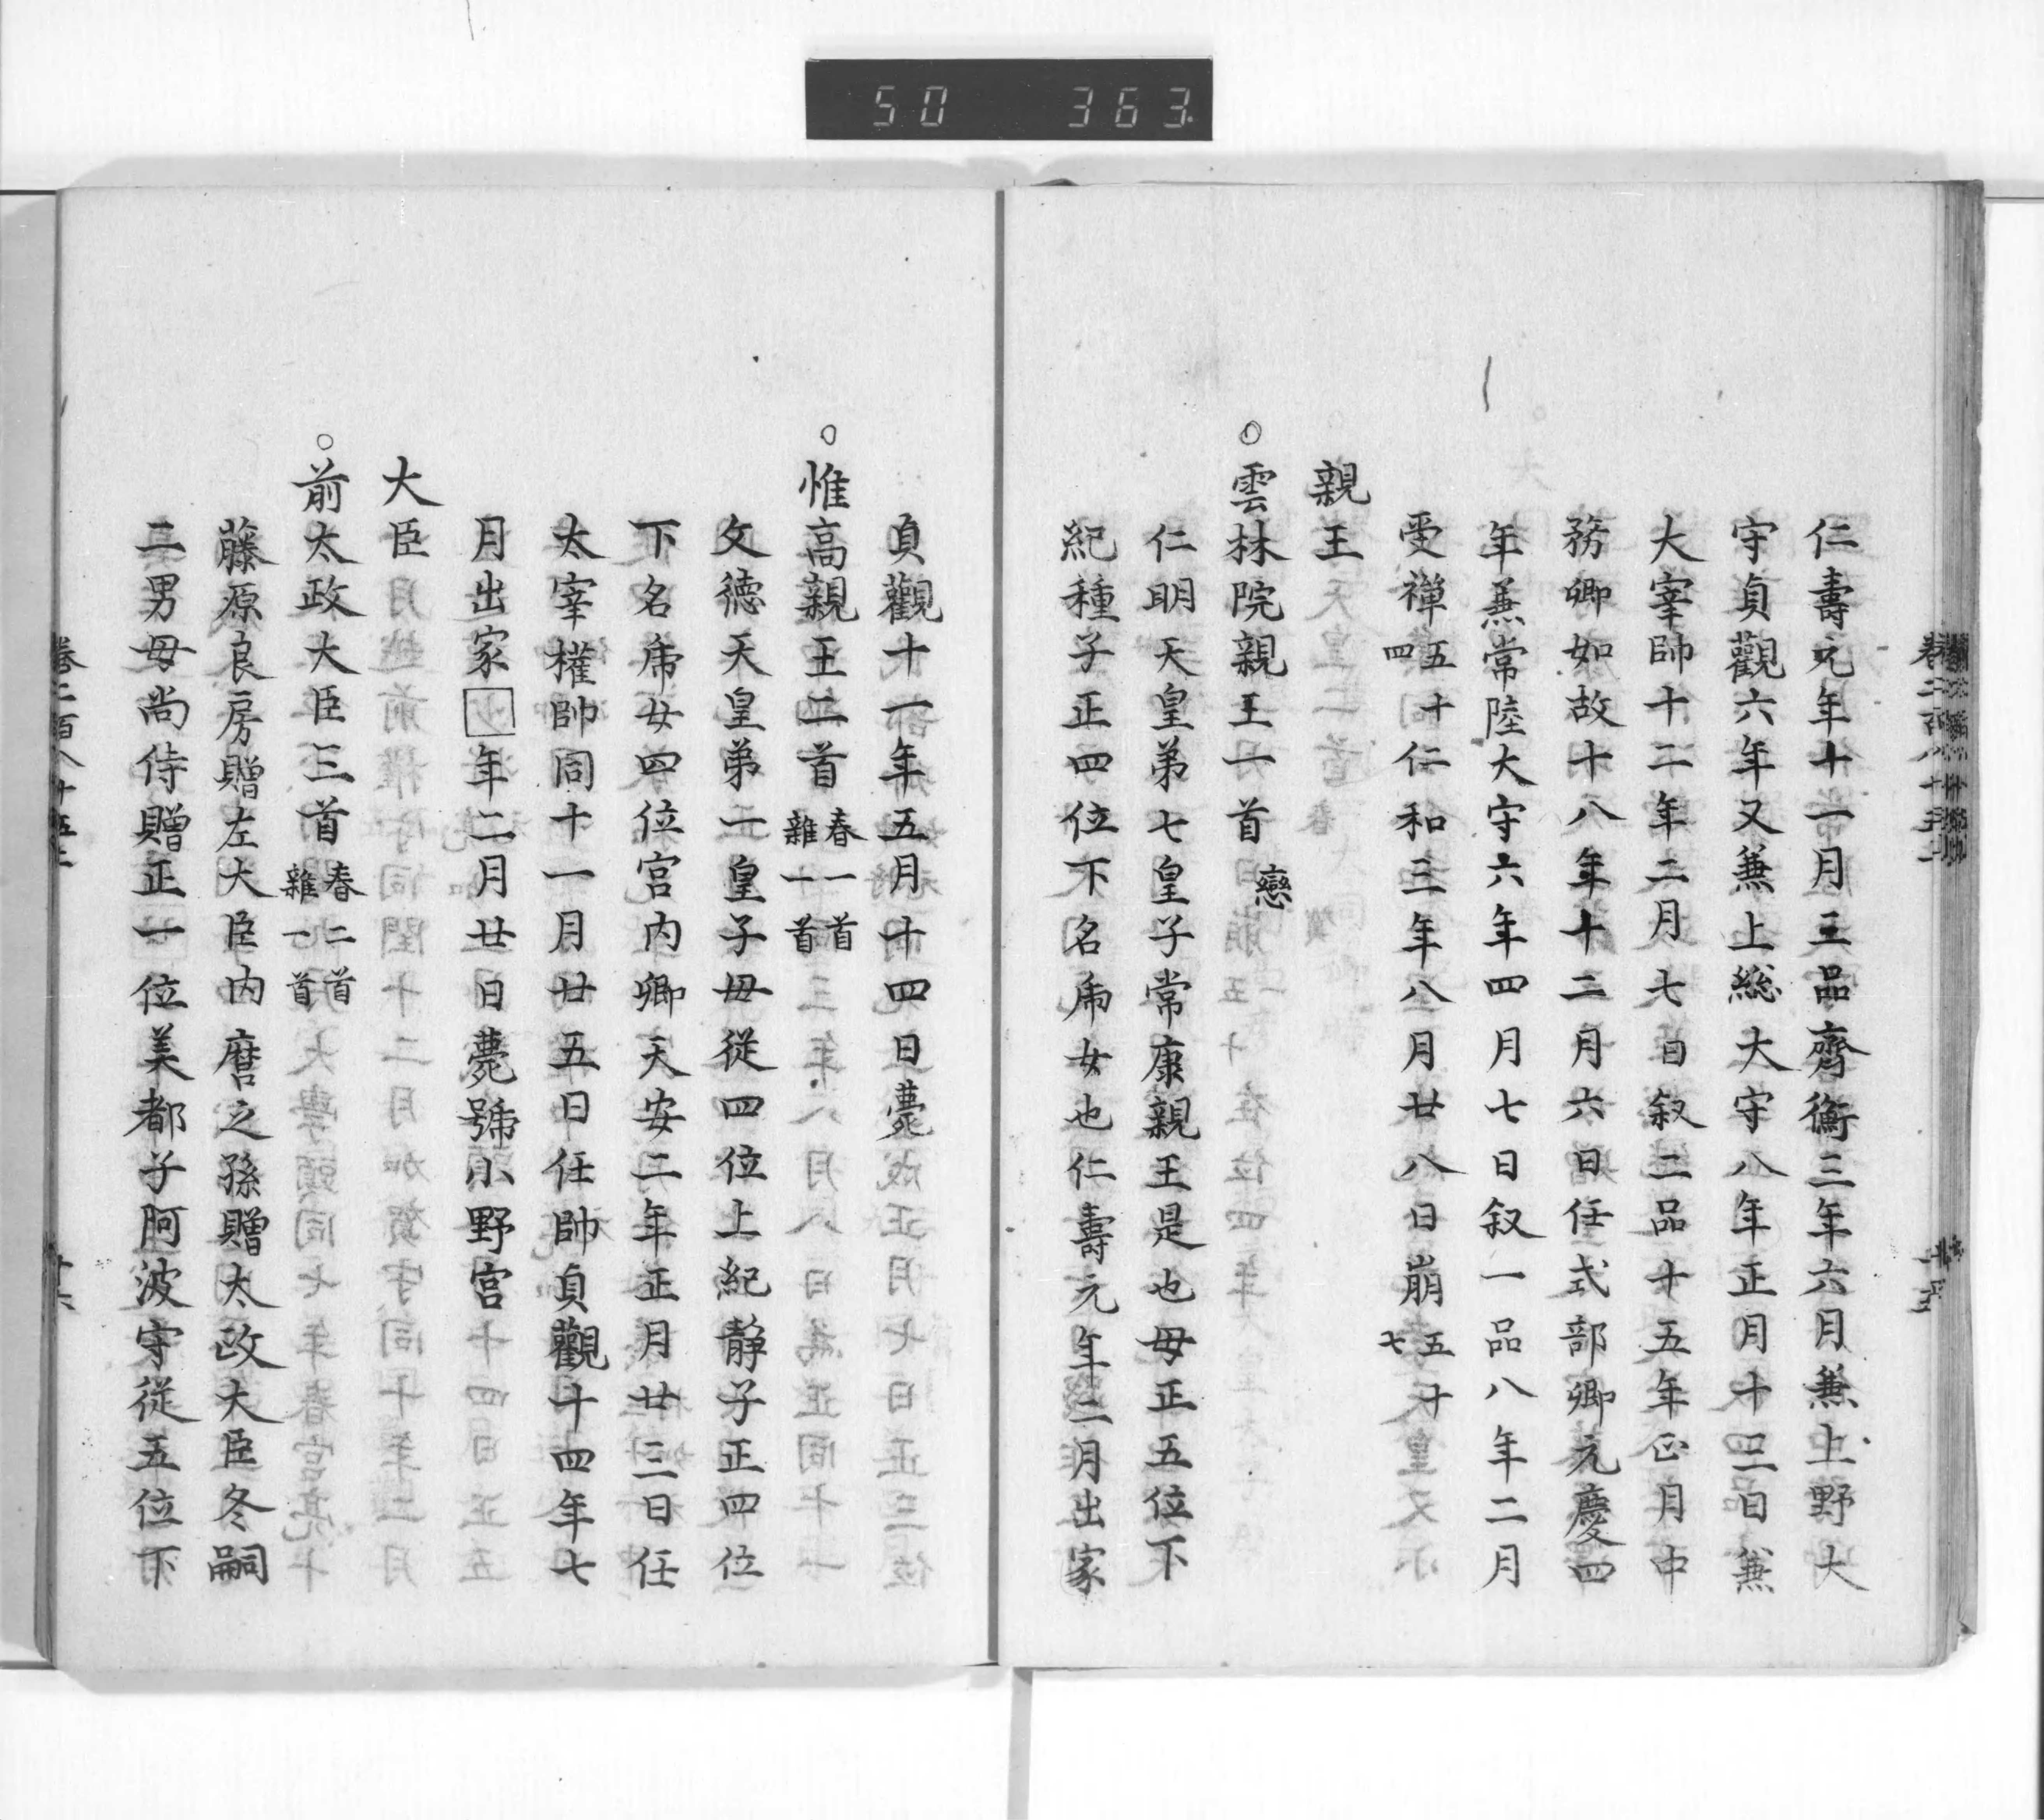 50 363
仁壽元年十一月三品齊衡三年六月兼上野大
守貞觀六年又兼上総大守八年正月十三日兼
大宰帥十二年二月七日叙二品十五年正月中
務卿如故十八年十二月六日任式部卿元慶四
年兼常陸大守六年四月七日叙一品八年二月
受禅五十四仁和三年八月廿八日崩五十七
親王
○雲林院親王一首 戀
仁明天皇第七皇子常康親王是也母正五位下
紀種子正四位下名虎女也仁壽元年二月出家
貞觀十一年五月十四日薨
○惟高親王二首 春一首 雜一首
文徳天皇第一皇子母従四位上紀静子正四位
下名虎女四位宮内卿天安二年正月廿三日任
太宰權帥同十一月廿五日任帥貞觀十四年七
月出家年二月廿日薨號小野宮
大臣
○前太政大臣三首 春二首 雜一首
藤原良房贈左大臣内麿之孫贈太政大臣冬嗣
二男母尚侍贈正一位美都子阿波守従五位下
卷二百八十五上